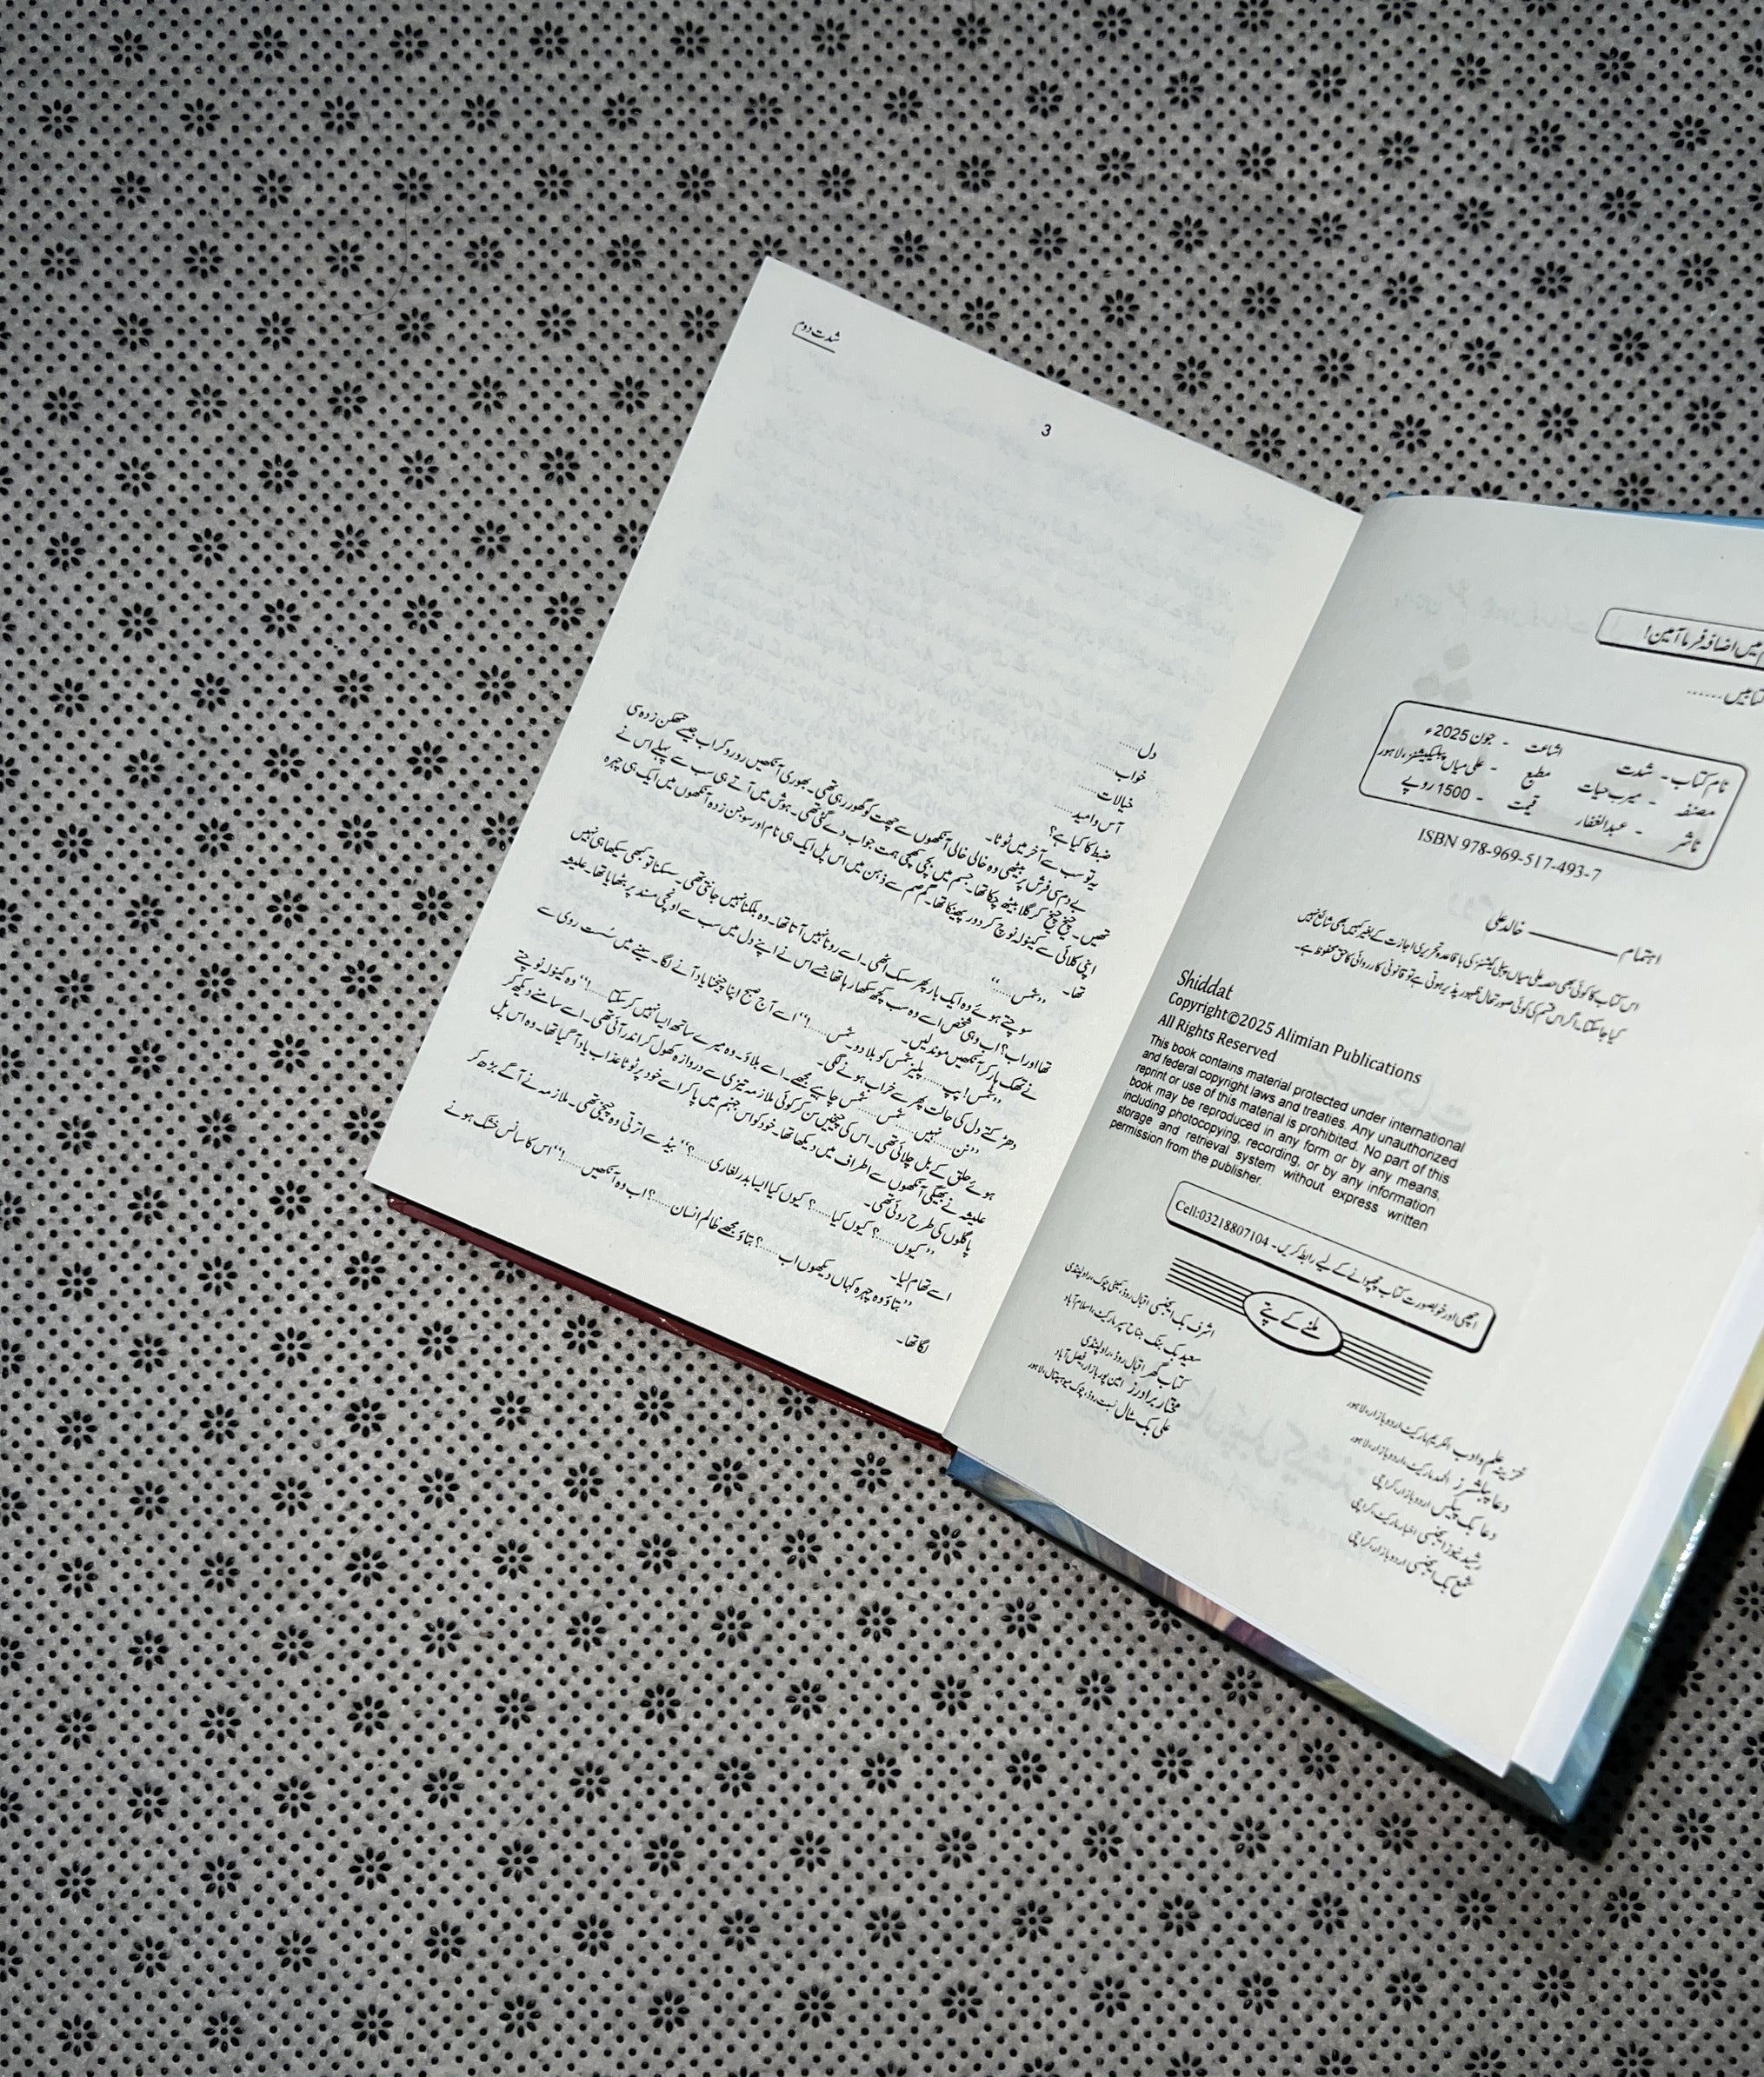 میں اضافہ فرما آمین!
نام کتاب - شدت
اشاعت - جون 2025ء
مصنفہ - میرب حیات
مطبع - علی میاں پبلیکیشنز، لاہور
ناشر - عبدالغفار
قیمت - 1500 روپے
ISBN 978-969-517-493-7
اہتمام ــــــــ خالد علی
اس کتاب کا کوئی بھی حصہ علی میاں پبلی کیشنز کی باقاعدہ تحریری اجازت کے بغیر کہیں بھی شائع نہیں
کیا جاسکتا۔ اگر اس قسم کی کوئی صورتحال ظہور پذیر ہوتی ہے تو قانونی کارروائی کا حق محفوظ ہے۔
Shiddat
Copyright©2025 Alimian Publications
All Rights Reserved
This book contains material protected under international
and federal copyright laws and treaties. Any unauthorized
reprint or use of this material is prohibited. No part of this
book may be reproduced in any form or by any means,
including photocopying, recording, or by any information
storage and retrieval system without express written
permission from the publisher.
اچھی اور خوبصورت کتاب چھپوانے کے لیے رابطہ کریں۔ Cell:03218807104
ملنے کے پتے
خزینہ علم و ادب الکریم مارکیٹ، اردو بازار، لاہور
دعا پبلشرز الحمد مارکیٹ، اردو بازار، لاہور
دعا بک پیلس اردو بازار، کراچی
رشید نیوز ایجنسی اخبار مارکیٹ، کراچی
شمع بک ایجنسی اردو بازار، کراچی
اشرف بک ایجنسی اقبال روڈ، کمیٹی چوک، راولپنڈی
سعید بک بنک جناح سپر مارکیٹ، اسلام آباد
کتاب گھر اقبال روڈ، راولپنڈی
مختار برادرز امین پور بازار، فیصل آباد
علی بک سٹال نسبت روڈ، چوک میو ہسپتال، لاہور
شدت دوم
3
دل......
خواب......
خیالات......
آس و امید......
ضبط کا کیا ہے؟
یہ تو سب سے آخر میں ٹوٹتا۔
بے دم سی فرش پر بیٹھی وہ خالی خالی آنکھوں سے چھت کو گھور رہی تھی۔ بھوری آنکھیں رو رو کر اب جیسے تھکن زدہ سی
تھیں۔ چیخ چیخ کر گلا بیٹھ چکا تھا۔ جسم میں بچی کھچی ہمت جواب دے گئی تھی۔ ہوش میں آتے ہی سب سے پہلے اس نے
اپنی کلائی سے کینولہ نوچ کر دور پھینکا تھا۔ گم صم سے ذہن میں اس پل ایک ہی نام اور سوجن زدہ آنکھوں میں ایک ہی چہرہ
تھا۔
”شمس......“
سوچتے ہوئے وہ ایک بار پھر سسک اٹھی۔ اسے رونا نہیں آتا تھا۔ وہ بلکنا نہیں جانتی تھی۔ سسکنا تو کبھی سیکھا ہی نہیں
تھا اور اب؟ اب وہی شخص اسے وہ سب کچھ سکھا رہا تھا جسے اس نے اپنے دل میں سب سے اونچی مسند پر بٹھایا تھا۔ علیشہ
نے تھک ہار کر آنکھیں موند لیں۔
”شمس! پپ...... پلیز شمس کو بلا دو۔ شمس......!“ اسے آج صبح اپنا چیخنا یاد آنے لگا۔ سینے میں سُست روی سے
دھڑکتے دل کی حالت پھر سے خراب ہونے لگی۔
”نن...... نہیں...... شمس...... شمس چاہیے مجھے۔ اسے بلاؤ۔ وہ میرے ساتھ ایسا نہیں کر سکتا......!“ وہ کینولہ نوچتے
ہوئے حلق کے بل چلائی تھی۔ اس کی چیخیں سن کر کوئی ملازمہ تیزی سے دروازہ کھول کر اندر آئی تھی۔ اسے سامنے دیکھ کر
علیشہ نے بھیگی آنکھوں سے اطراف میں دیکھا تھا۔ خود کو اس جہنم میں پا کر اسے خود پر ٹوٹا عذاب یاد آ گیا تھا۔ وہ اس پل
پاگلوں کی طرح روئی تھی۔
”کیوں......؟ کیوں کیا......؟ کیوں کیا ایسا بدر لغاری......؟“ بیڈ سے اترتی وہ چیخی تھی۔ ملازمہ نے آگے بڑھ کر
اسے تھام لیا۔
”بتاؤ وہ چہرہ کہاں دیکھوں اب......؟ بتاؤ مجھے ظالم انسان......؟ اب وہ آنکھیں......!“ اس کا سانس خشک ہونے
لگا تھا۔